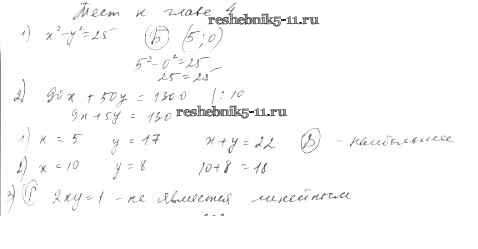 Тест к главе 4
reshebnik5-11.ru
1) x² - y² = 25 (Б) (5; 0)
5² - 0² = 25
25 = 25
reshebnik5-11.ru
2) 90x + 50y = 1300 | : 10
9x + 5y = 130
1) x = 5 y = 17 x + y = 22 (В) - наибольшее
2) x = 10 y = 8 10 + 8 = 18
3) (Г) 2xy = 1 - не является линейным